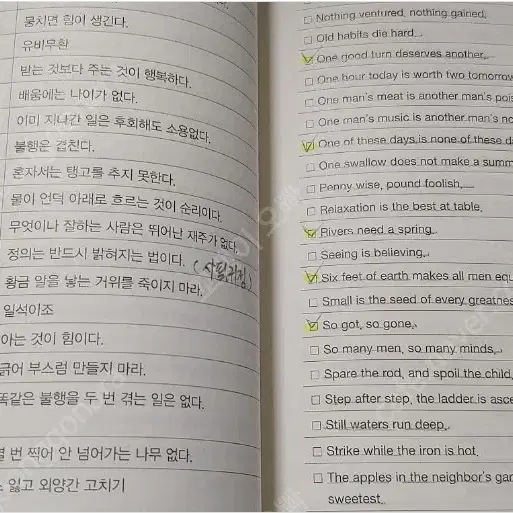 뭉치면 힘이 생긴다.
유비무환
받는 것보다 주는 것이 행복하다.
배움에는 나이가 없다.
이미 지나간 일은 후회해도 소용없다.
불행은 겹친다.
혼자서는 탱고를 추지 못한다.
물이 언덕 아래로 흐르는 것이 순리이다.
무엇이나 잘하는 사람은 뛰어난 재주가 없다.
정의는 반드시 밝혀지는 법이다. (사필귀정)
황금 알을 낳는 거위를 죽이지 마라.
일석이조
아는 것이 힘이다.
긁어 부스럼 만들지 마라.
똑같은 불행을 두 번 겪는 일은 없다.
번 찍어 안 넘어가는 나무 없다.
잃고 외양간 고치기
Nothing ventured, nothing gained.
Old habits die hard.
One good turn deserves another.
One hour today is worth two tomorrow
One man's meat is another man's pois
One man's music is another man's no
One of these days is none of these da
One swallow does not make a summ
Penny wise, pound foolish.
Relaxation is the best at table.
Rivers need a spring.
Seeing is believing.
Six feet of earth makes all men equ
Small is the seed of every greatnes
So got, so gone.
So many men, so many minds.
Spare the rod, and spoil the child.
Step after step, the ladder is asce
Still waters run deep.
Strike while the iron is hot.
The apples in the neighbor's gar
sweetest.